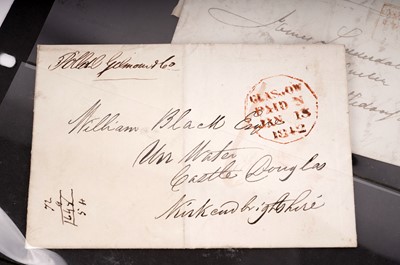 Pollok Gilmour & Co
GLASGOW
PAID N
JAN 13
1842
William Black Esq
Urr Water
Castle Douglas
Kirkcudbrightshire
72
1644
54
James